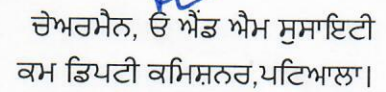 ਚੇਅਰਮੈਨ, ਓ ਐਂਡ ਐਮ ਸੁਸਾਇਟੀ
ਕਮ ਡਿਪਟੀ ਕਮਿਸ਼ਨਰ,ਪਟਿਆਲਾ।